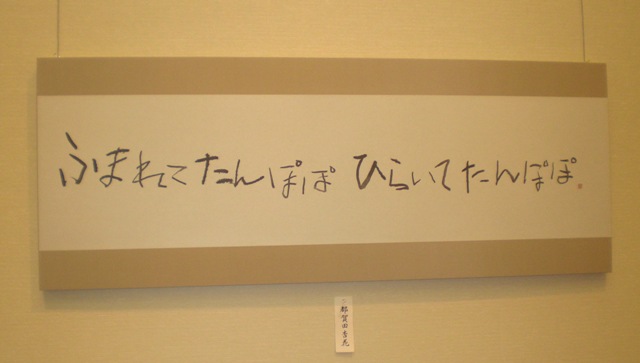 ふまれてたんぽぽ ひらいてたんぽぽ
都賀田秀花